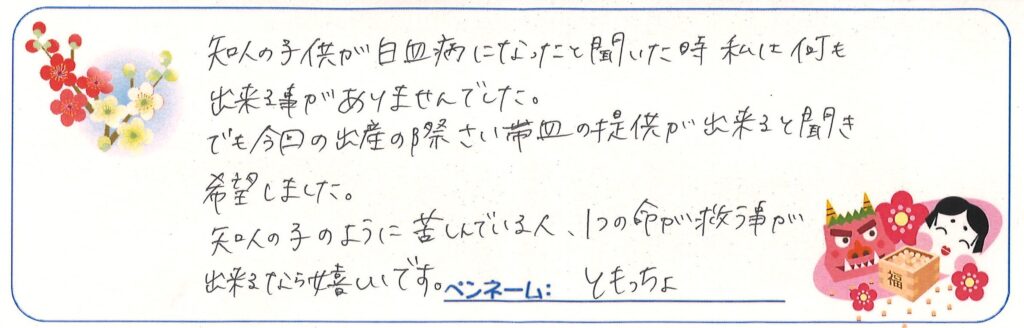 知人の子供が白血病になったと聞いた時 私は何も
出来る事がありませんでした。
でも今回の出産の際さい帯血の提供が出来ると聞き
希望しました。
知人の子のように苦しんでいる人、1つの命が救う事が
出来るなら嬉しいです。
ペンネーム: ともっちょ
福